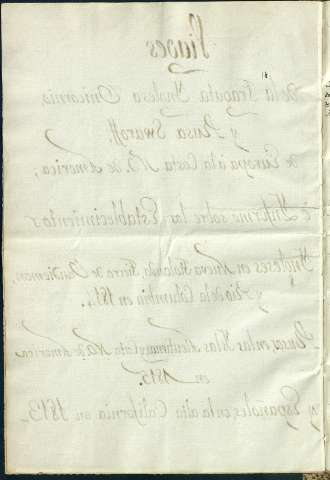 Viages
de la Fragata Inglesa Unicornio
y Rusa Swaroff,
de Europa á la Costa N.O. de America,
é Informe sobre los Establecimientos
Ingleses en Nueva Holanda, Tierra de Vandiemen,
y Rio de la Columbia en 1814.
Rusos en las Yslas y Costa N.O. de America
en 1815.
y Españoles en la alta California en 1813